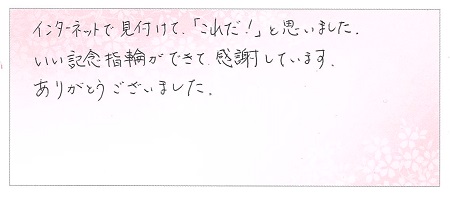 インターネットで見付けて、「これだ！」と思いました。
いい記念指輪ができて、感謝しています。
ありがとうございました。